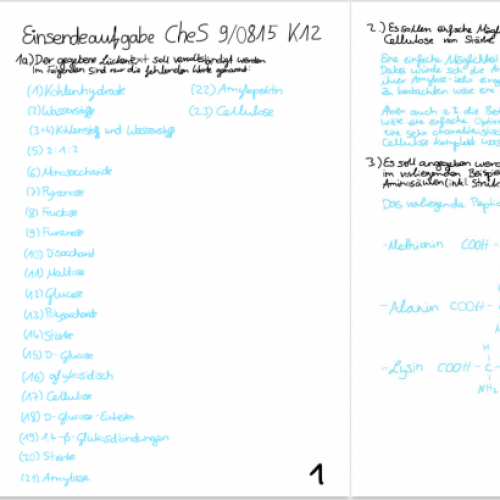 Einsendeaufgabe CheS 9/0815 K12
1a) Der gegebene Lückentext soll vervollständigt werden
Im Folgenden sind nur die fehlenden Worte genannt:
(1) Kohlenhydrate
(2) Wasserstoff
(3+4) Kohlenstoff und Wasserstoff
(5) 2:1:2
(6) Monosaccharide
(7) Pyranose
(8) Fructose
(9) Furanose
(10) Disaccharid
(11) Maltose
(12) Glucose
(13) Polysaccharide
(14) Stärke
(15) D-Glucose
(16) glykosidisch
(17) Cellulose
(18) D-Glucose-Einheiten
(19) 1,4-β-Glukosidbindungen
(20) Stärke
(21) Amylose
(22) Amylopektin
(23) Cellulose
1
2.) Es sollen einfache Möglic
Cellulose von Stärke
Eine einfache Möglichkeit
Dabei würde sich die
ihrer Amylose
zu beobachten wäre eine
Aber auch z.B. die
wäre eine einfache Option
eine sehr
Cellulose komplett
3.) Es soll angegeben werd
im vorliegenden Beispie
Aminosäuren (inkl. Struk
Das vorliegende Peptid
-Methionin COOH -
-Alanin COOH -
H
-Lysin COOH - C
NH₂